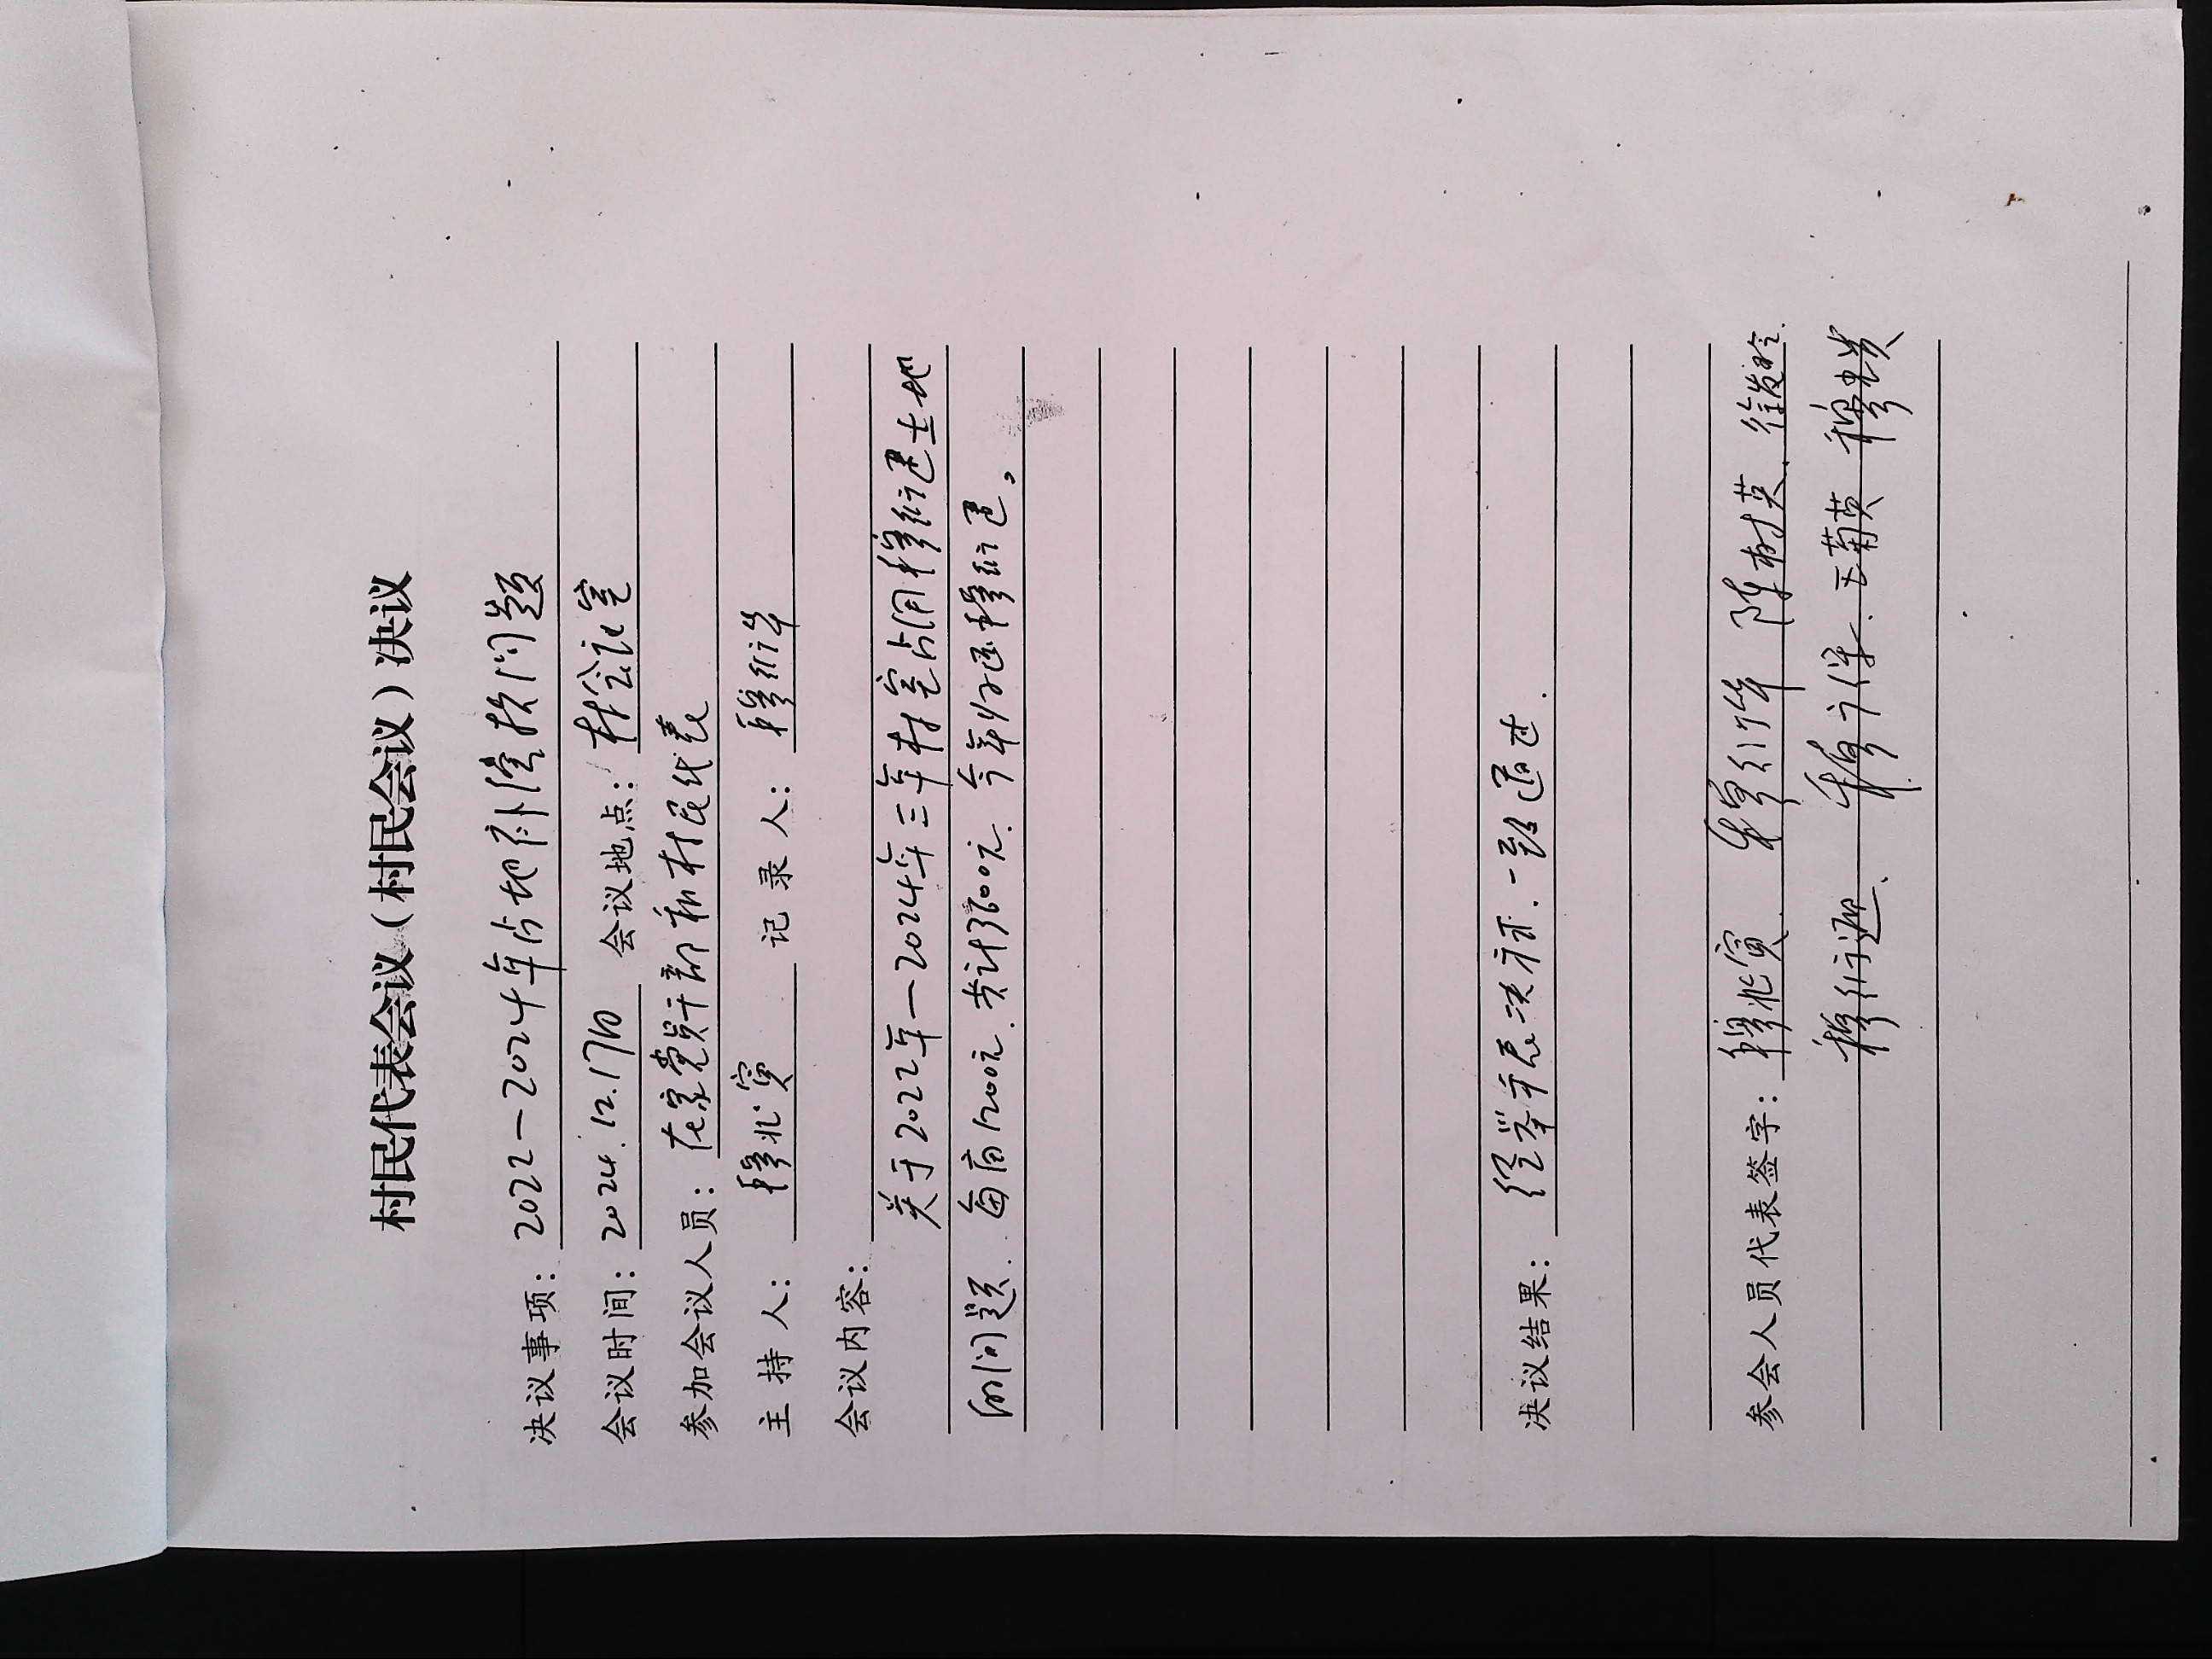 村民代表会议（村民会议）决议
决议事项：2022—2024年占地补偿款问题
会议时间：2024.12.17日 会议地点：村会议室
参加会议人员：在家党员干部和村民代表
主 持 人：穆兆宾 记 录 人：穆衍华
会议内容：
关于2022年—2024年三年村室占用穆衍进土地
的问题. 每亩1200元. 共计3600元. 今年归还穆衍进。
决议结果：经举手表决. 一致通过.
参会人员代表签字：穆兆宾 穆衍华 陈树英
穆衍迎 王菊英